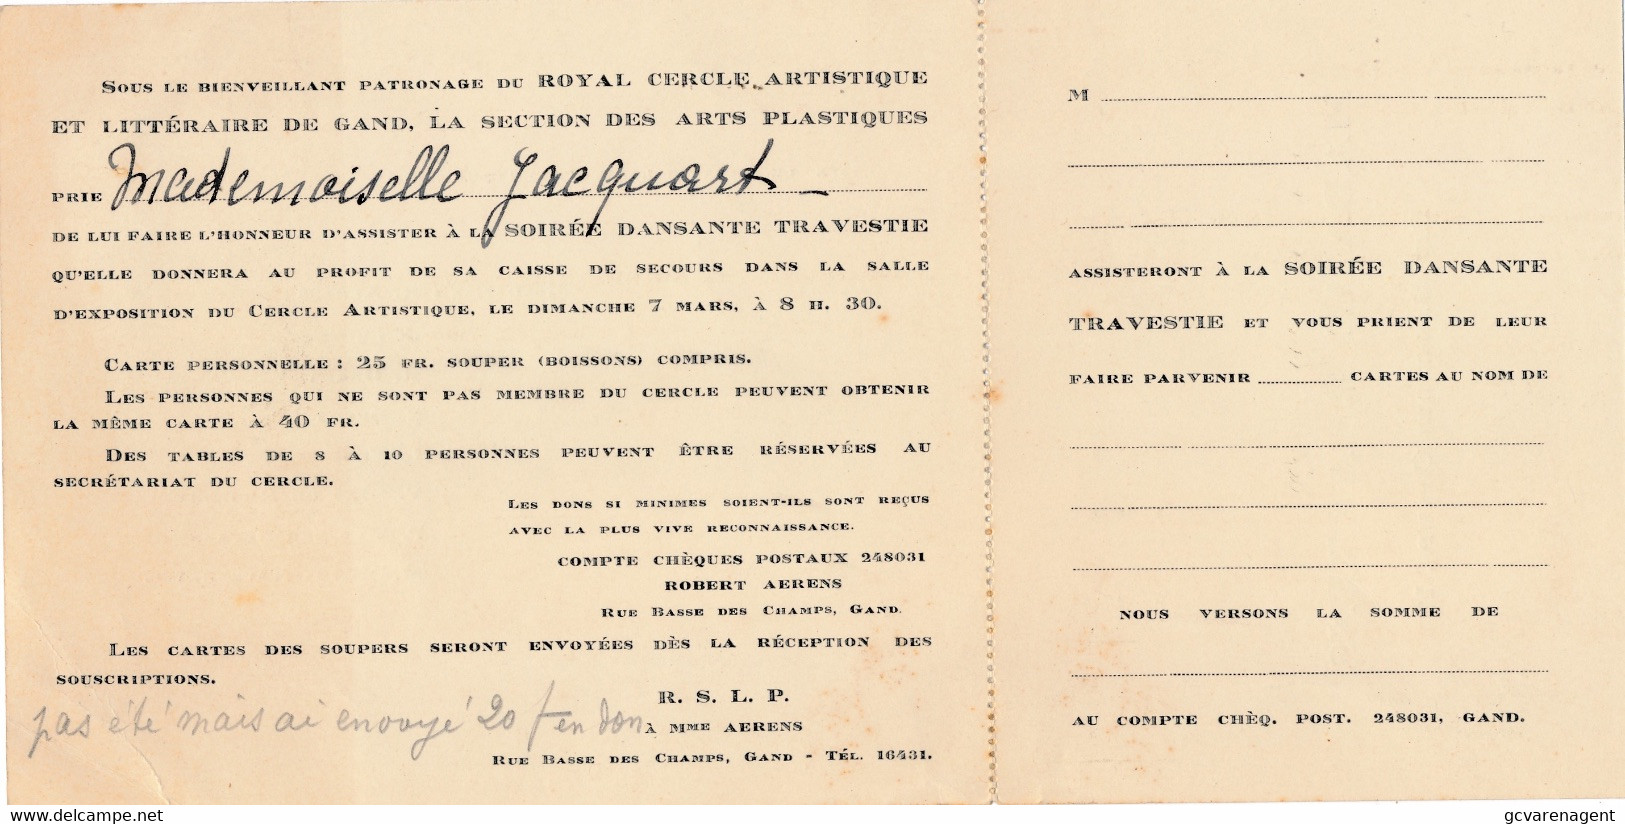 Sous le bienveillant patronage du ROYAL CERCLE ARTISTIQUE
ET LITTÉRAIRE DE GAND, LA SECTION DES ARTS PLASTIQUES
PRIE Mademoiselle Jacquart
DE LUI FAIRE L'HONNEUR D'ASSISTER À LA SOIRÉE DANSANTE TRAVESTIE
QU'ELLE DONNERA AU PROFIT DE SA CAISSE DE SECOURS DANS LA SALLE
D'EXPOSITION DU CERCLE ARTISTIQUE, LE DIMANCHE 7 MARS, À 8 H. 30.
CARTE PERSONNELLE : 25 FR. SOUPER (BOISSONS) COMPRIS.
LES PERSONNES QUI NE SONT PAS MEMBRE DU CERCLE PEUVENT OBTENIR
LA MÊME CARTE À 40 FR.
DES TABLES DE 8 À 10 PERSONNES PEUVENT ÊTRE RÉSERVÉES AU
SECRÉTARIAT DU CERCLE.
LES DONS SI MINIMES SOIENT-ILS SONT REÇUS
AVEC LA PLUS VIVE RECONNAISSANCE.
COMPTE CHÈQUES POSTAUX 248031
ROBERT AERENS
RUE BASSE DES CHAMPS, GAND.
LES CARTES DES SOUPERS SERONT ENVOYÉES DÈS LA RÉCEPTION DES
SOUSCRIPTIONS.
R. S. L. P.
pas été mais ai envoyé 20 f en don
À MME AERENS
RUE BASSE DES CHAMPS, GAND - TÉL. 16431.
M
ASSISTERONT À LA SOIRÉE DANSANTE
TRAVESTIE ET VOUS PRIENT DE LEUR
FAIRE PARVENIR CARTES AU NOM DE
NOUS VERSONS LA SOMME DE
AU COMPTE CHÈQ. POST. 248031, GAND.
delcampe.net
gcvarenagent